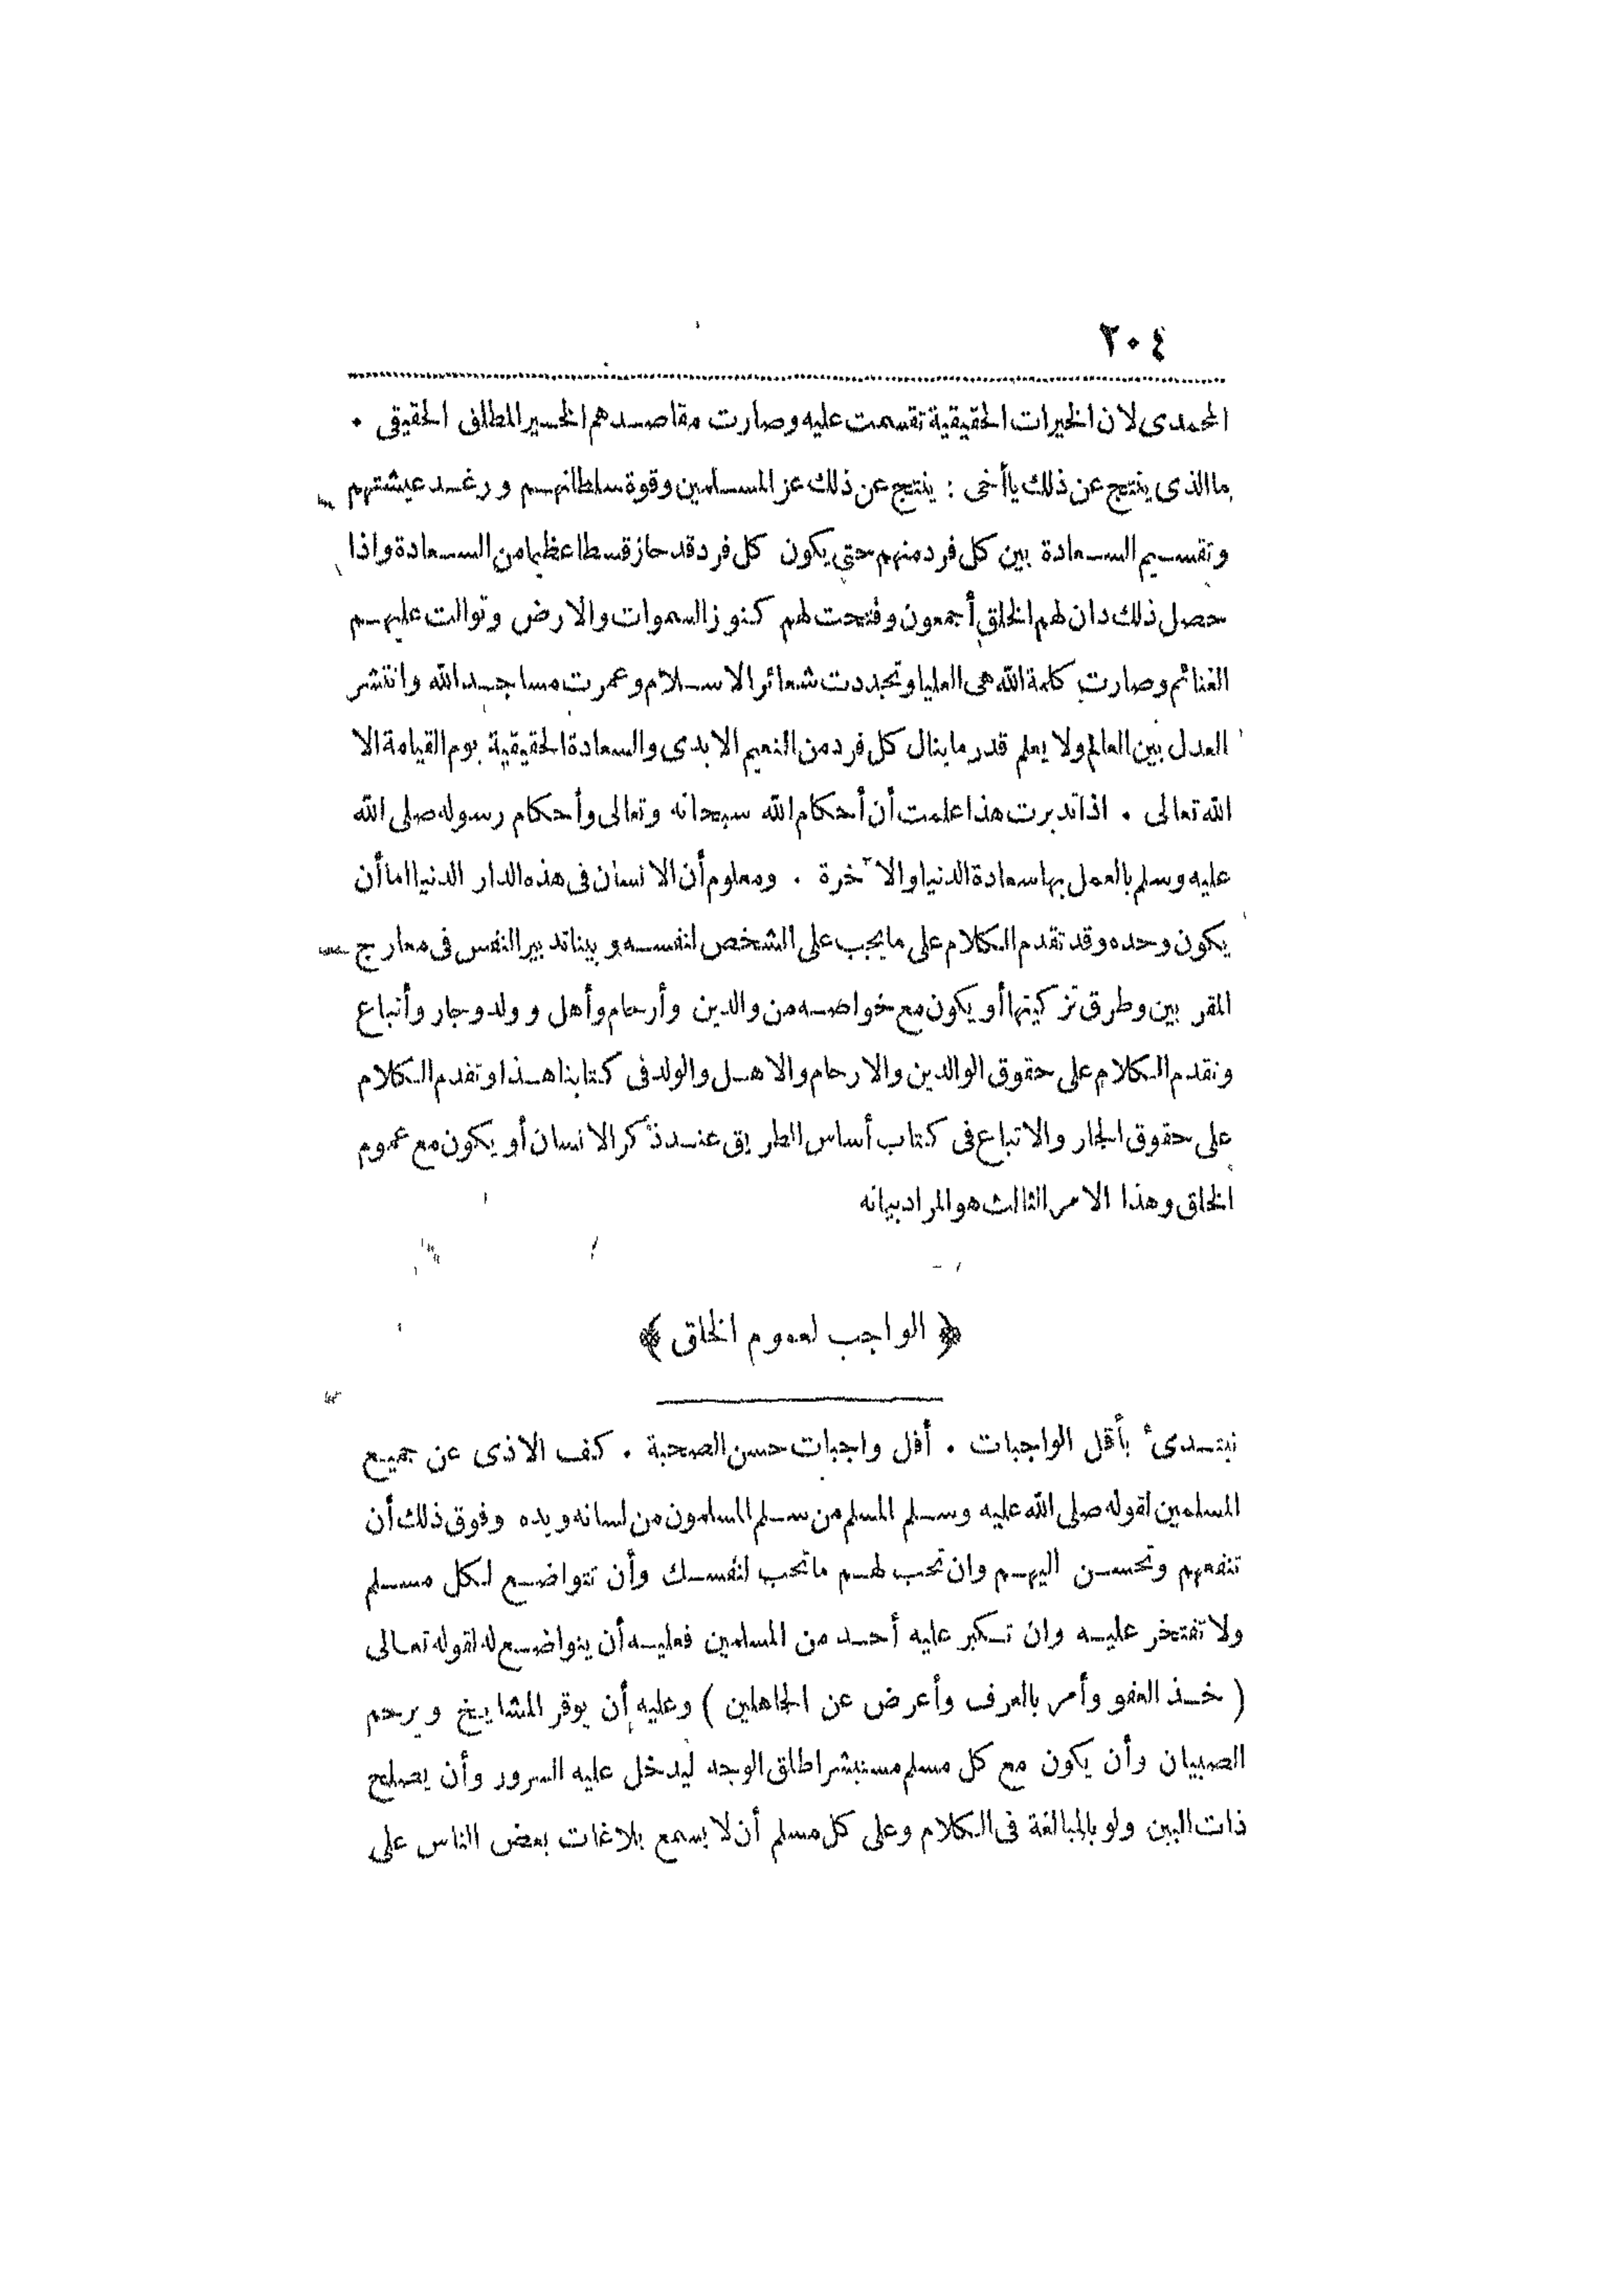 ٢٠٤
المحمدى لان الخيرات الحقيقية تقسمت عليه وصارت مقاصدهم الخير المطلق الحقيقى .
ما الذى ينتج عن ذلك يا أخى : ينتج عن ذلك عز المسلمين وقوة سلطانهم ورغد عيشتهم
وتقسيم السعادة بين كل فرد منهم حتى يكون كل فرد قد حاز قسطا عظيما من السعادة واذا
حصل ذلك دان لهم الخلق أجمعون وفتحت لهم كنوز السموات والارض وتوالت عليهم
الغنائم وصارت كلمة الله هى العليا وتجددت شعائر الاسلام وعمرت مساجد الله وانتشر
العدل بين العالم ولا يعلم قدر ما ينال كل فرد من النعيم الابدى والسعادة الحقيقية يوم القيامة الا
الله تعالى . اذا تدبرت هذا علمت أن أحكام الله سبحانه وتعالى وأحكام رسوله صلى الله
عليه وسلم بالعمل بها سعادة الدنيا والآخرة . ومعلوم أن الانسان فى هذه الدار الدنيا اما أن
يكون وحده وقد تقدم الكلام على ما يجب على الشخص لنفسه وبينا تدبير النفس فى معارج
المقربين وطرق تزكيتها أو يكون مع خواصه من والدين وأرحام وأهل وولد وجار وأتباع
وتقدم الكلام على حقوق الوالدين والارحام والاهل والولد فى كتابنا هذا وتقدم الكلام
على حقوق الجار والاتباع فى كتاب أساس الطريق عند ذكر الانسان أو يكون مع عموم
الخلق وهذا الامر الثالث هو المراد بيانه
﴿ الواجب لعموم الخلق ﴾
نبتدىء بأقل الواجبات . أقل واجبات حسن الصحبة . كف الاذى عن جميع
المسلمين لقوله صلى الله عليه وسلم المسلم من سلم المسلمون من لسانه ويده وفوق ذلك أن
تنفعهم وتحسن اليهم وان تحب لهم ما تحب لنفسك وأن تتواضع لكل مسلم
ولا تفتخر عليه وان تكبر عليه أحد من المسلمين فعليه أن يتواضع له لقوله تعالى
( خذ العفو وأمر بالعرف وأعرض عن الجاهلين ) وعليه أن يوقر المشايخ ويرحم
الصبيان وأن يكون مع كل مسلم مستبشرا طلق الوجه ليدخل عليه السرور وأن يصلح
ذات البين ولو بالمبالغة فى الكلام وعلى كل مسلم أن لا يسمع بلاغات بعض الناس على